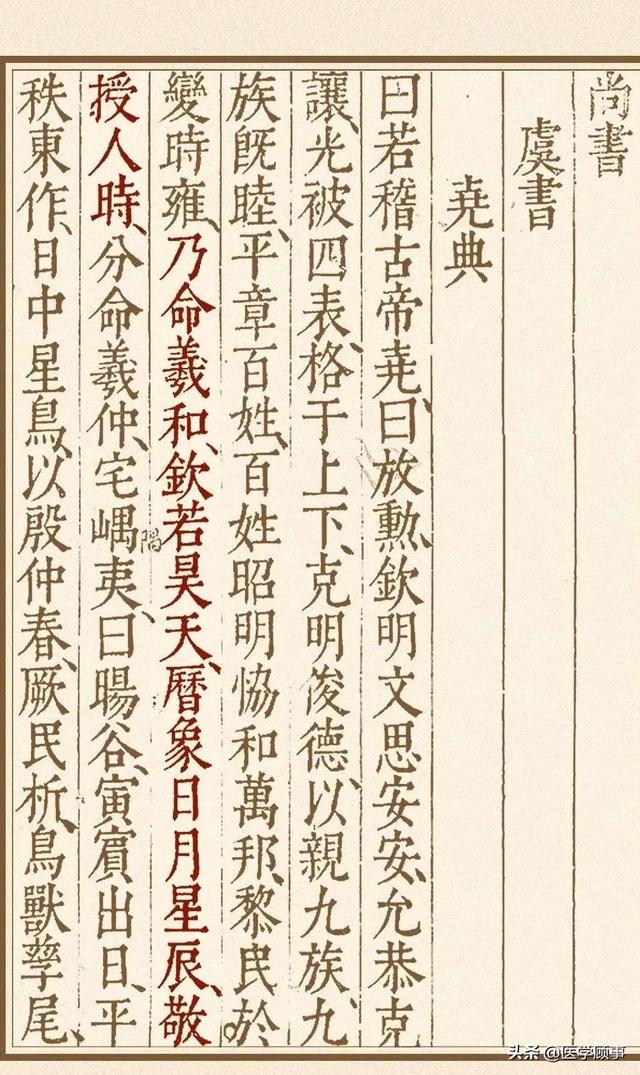 尚書
虞書
堯典
曰若稽古帝堯、曰放勲、欽明文思安安、允恭克
讓、光被四表、格于上下、克明俊德、以親九族、九
族旣睦、平章百姓、百姓昭明、恊和萬邦、黎民於
變時雍、乃命羲和、欽若昊天、曆象日月星辰、敬
授人時、分命羲仲、宅嵎夷、曰暘谷、寅賓出日、平
隅
秩東作、日中星鳥、以殷仲春、厥民析、鳥獸孳尾、
头条 @医学顾事